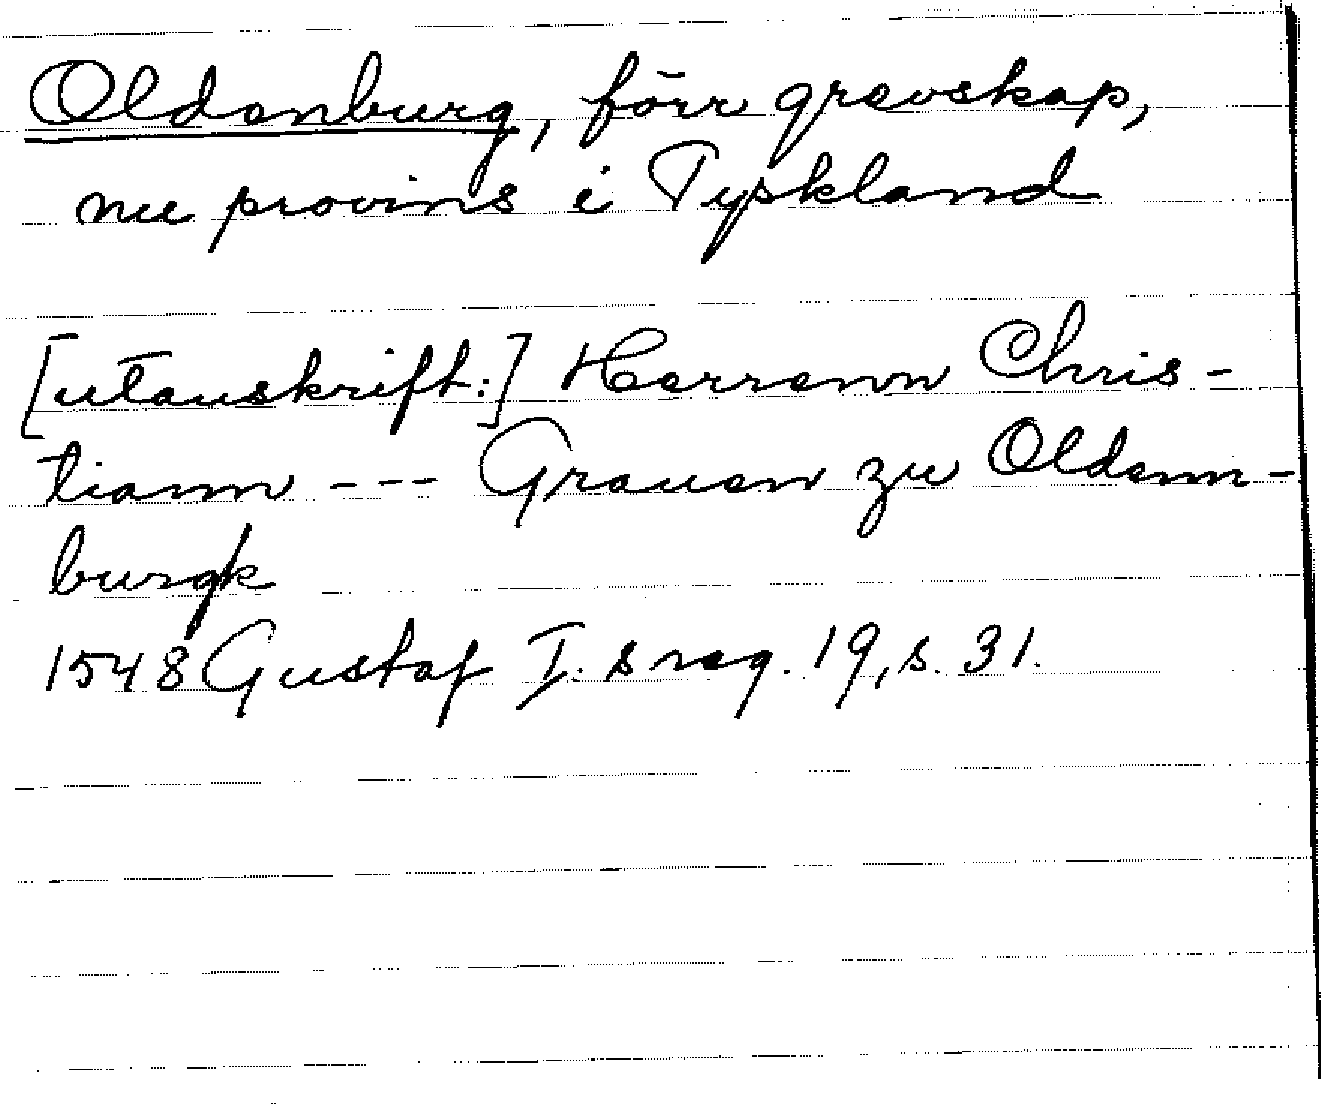 Oldenburg, förr grevskap,
nu provins i Tyskland
[utanskrift:] Herrenn Chris-
tiann --- Grauen zu Oldenn-
burgk
1548 Gustaf I:s reg. 19, s. 31.